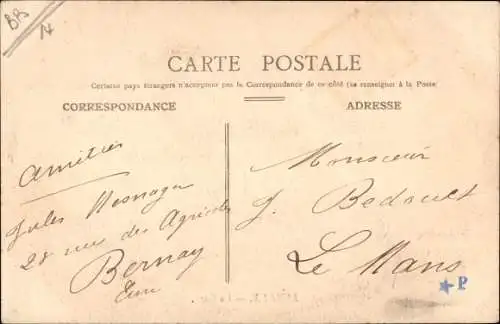 BR
14
CARTE POSTALE
Certains pays étrangers n'acceptent pas la Correspondance de ce côté (se renseigner à la Poste
CORRESPONDANCE
ADRESSE
Amitiés
Jules Mesnager
28 rue des
Bernay
Eure
Monsieur
J. Bedouet
Le Mans
P